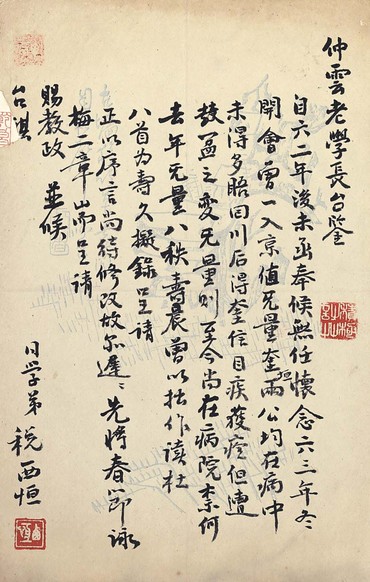 仲雲老學長台鑒
自六二年後未函奉候無任懷念六三年冬
開會曾一入京值无量奎垣兩公均在病中
未得多晤回川后得奎信目疾獲痊但遭
鼓盆之變无量則至今尚在病院柰何
去年无量八秩壽辰曾以拙作讀杜
八首为壽久擬錄呈請
正以序言尚待修改故爾遲〻先將春節詠
梅二章耑呈請
賜教政 並候
台祺
同学弟 税西恒